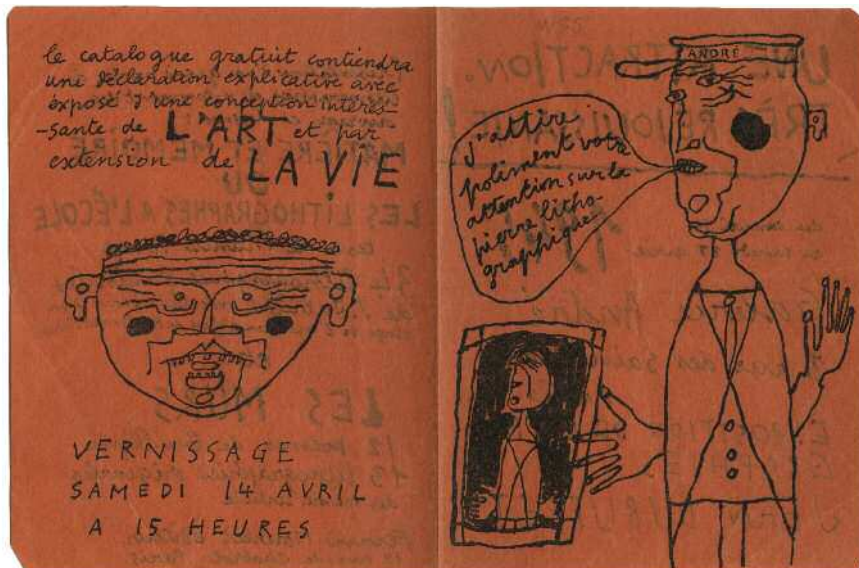 le catalogue gratuit contiendra
une déclaration explicative avec
exposé d'une conception intéres-
-sante de L'ART et par
extension de LA VIE
VERNISSAGE
SAMEDI 14 AVRIL
A 15 HEURES
ANDRÉ
J'attire
poliment votre
attention sur la
pierre litho-
graphique